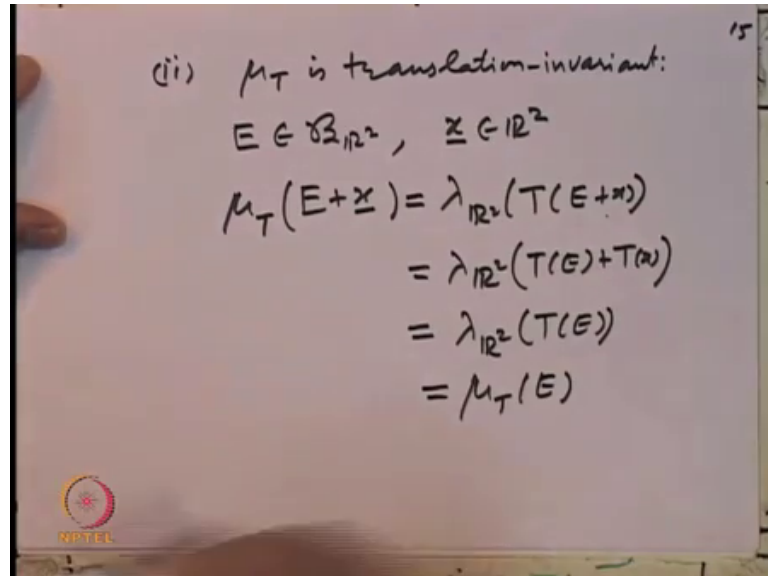 15
(ii) μ_T is translation-invariant:
E ∈ 𝓑_ℝ², x ∈ ℝ²
μ_T(E+x) = λ_ℝ²(T(E+x))
= λ_ℝ²(T(E)+T(x))
= λ_ℝ²(T(E))
= μ_T(E)
NPTEL